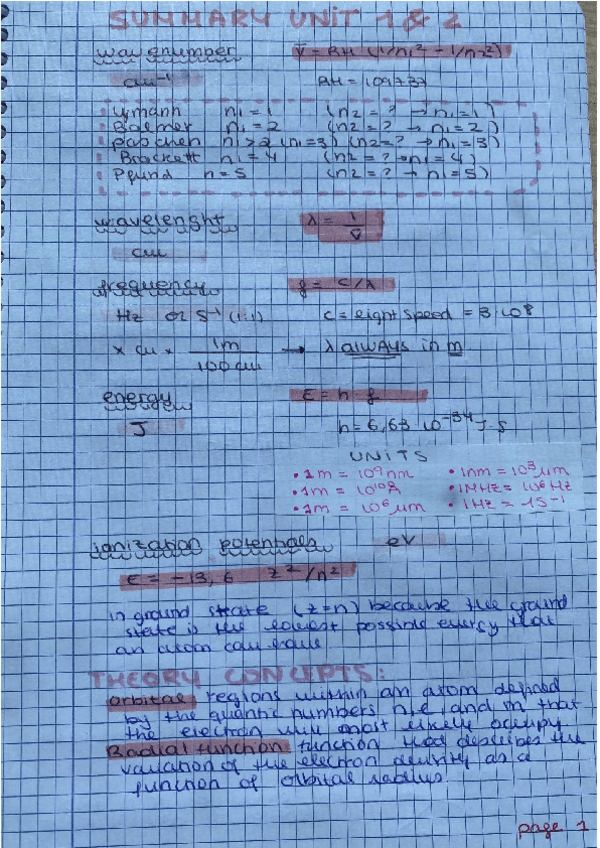 SUMMARY UNIT 1 & 2
wavenumber  ν̅ = RH (1/n₁² − 1/n₂²)
cm⁻¹  RH = 109737
Lymann  n₁ = 1  (n2 = ? → n₁ = 1)
Balmer  n₁ = 2  (n2 = ? → n₁ = 2)
paschen  n₁ > 2 (n₁ = 3)  (n2 = ? → n₁ = 3)
Brackett  n₁ = 4  (n2 = ? → n₁ = 4)
Pfund  n = 5  (n2 = ? → n₁ = 5)
wavelenght  λ = 1/ν̅
cm
frequency  f = c/λ
Hz or s⁻¹ (1:1)  c = light speed = 3·10⁸
x cm × 1m / 100 cm → λ always in m
energy  E = h · f
J  h = 6,63·10⁻³⁴ J·s
UNITS
• 1m = 10⁹ nm  • 1nm = 10³ μm
• 1m = 10¹⁰ Å  • 1MHz = 10⁶ Hz
• 1m = 10⁶ μm  • 1Hz = 1S⁻¹
ionization potentials  eV
E = −13,6 z²/n²
in ground state (z=n) because the ground
state is the lowest possible energy that
an atom can have
THEORY CONCEPTS:
orbital regions within an atom defined
by the quantic numbers n, l, and m that
the electron will most likely occupy
Radial function function that describes the
variation of the electron density as a
function of orbital radius.
page 1